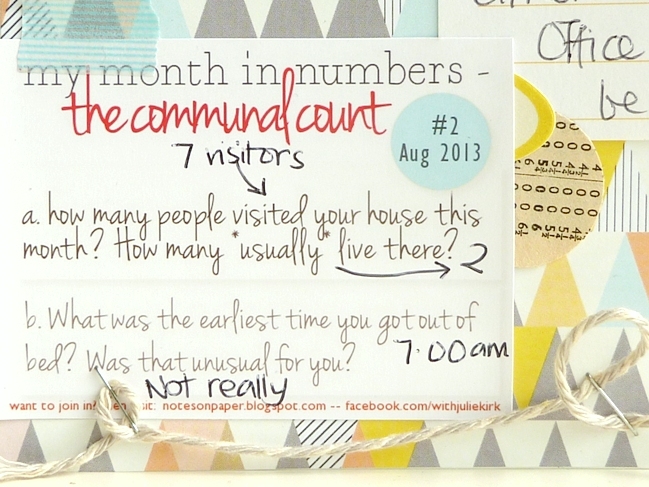 my month in numbers -
the communal count
#2
Aug 2013
7 visitors
a. how many people visited your house this
month? How many *usually* live there?
2
b. What was the earliest time you got out of
bed? Was that unusual for you?
7:00am
Not really
want to join in? visit: notesonpaper.blogspot.com -- facebook.com/withjuliekirk
Office
be